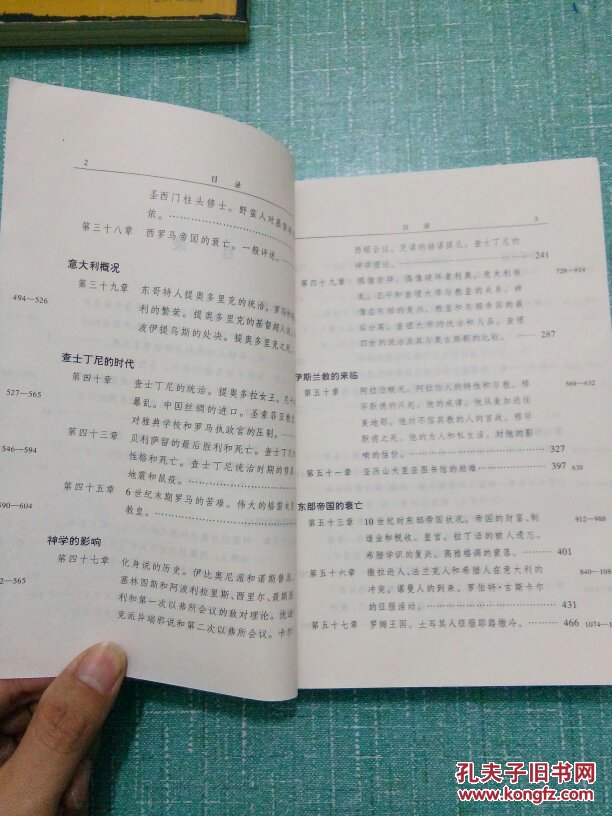 2
目 录
圣西门柱头修士。野蛮人对基督
依。
第三十八章 西罗马帝国的衰亡。一般评述。
意大利概况
494—526
第三十九章 东哥特人提奥多里克的统治。罗马和
利的繁荣。提奥多里克的基督超人说。
波伊提乌斯的处决。提奥多里克之死。
查士丁尼的时代
527—565
第四十章 查士丁尼的统治。提奥多拉女王。尼卡
暴乱。中国丝绸的进口。圣索菲亚教堂
对雅典学校和罗马执政官的压制。
546—594
第四十三章 贝利萨留的最后胜利和死亡。查士丁尼
性格和死亡。查士丁尼统治时期的彗星
地震和鼠疫。
590—604
第四十五章 6世纪末期罗马的苦难。伟大的格雷戈里
教皇。
神学的影响
2—565
第四十七章 化身说的历史。伊比奥尼派和诺斯替派
塞林图斯和阿波利拉里斯、西里尔、聂斯脱
利和第一次以弗所会议的敌对理论。优迪
克派异端邪说和第二次以弗所会议。卡尔
目 录
3
西顿会议。芝诺的赫诺提孔。查士丁尼的
神学理论。 241
第四十九章 偶像崇拜。偶像破坏者利奥。意大利叛
728—814
乱。丕平和查理大帝与教皇的关系。神
像在东部的复兴。教皇和东部帝国的最
后分离。查理大帝的统治和人品。查理
四世的统治及其与奥古斯都的比较。 287
伊斯兰教的来临
第五十章 阿拉伯概况。阿拉伯人的特性和宗教。穆
569—632
罕默德的兴起。他的戒律。他从麦加逃往
麦地那。他对不信其教的人的宣战。穆罕
默德之死。他的为人和私生活。对他的影
响的估价。 327
第五十一章 亚历山大里亚图书馆的劫难 397
638
东部帝国的衰亡
第五十三章 10世纪时东部帝国状况。帝国的财富、制
912—988
造业和税收。皇宫。拉丁语的被人遗忘。
希腊学识的复兴。高雅格调的衰落。 401
第五十六章 撒拉逊人、法兰克人和希腊人在意大利的
840—108
冲突。诺曼人的到来。罗伯特·吉斯卡尔
的征服活动。 431
第五十七章 罗姆王国。土耳其人征服耶路撒冷。 466
1074—1
孔夫子旧书网
www.kongfz.com